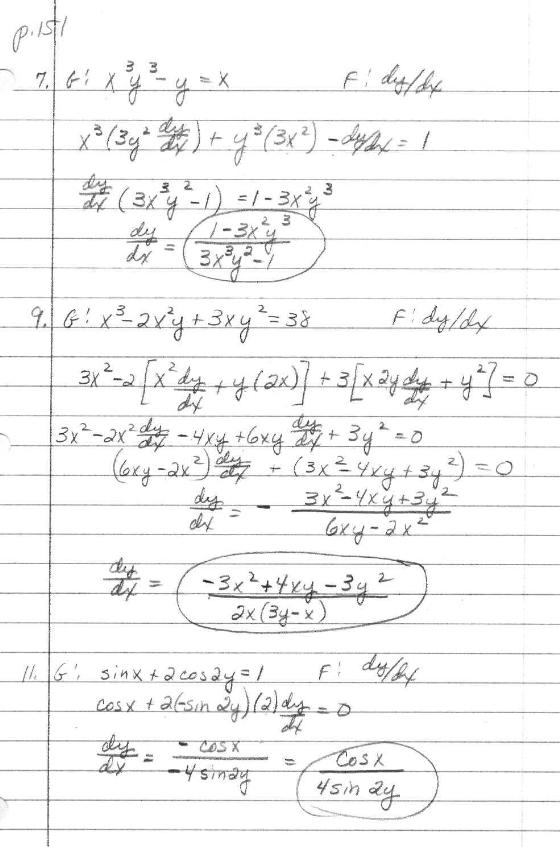 p.151
7. G: x³y³ - y = x F: dy/dx
x³(3y² dy/dx) + y³(3x²) - dy/dx = 1
dy/dx (3x³y² - 1) = 1 - 3x²y³
dy/dx = (1 - 3x²y³)/(3x³y² - 1)
9. G: x³ - 2x²y + 3xy² = 38 F: dy/dx
3x² - 2[x² dy/dx + y(2x)] + 3[x2y dy/dx + y²] = 0
3x² - 2x² dy/dx - 4xy + 6xy dy/dx + 3y² = 0
(6xy - 2x²) dy/dx + (3x² - 4xy + 3y²) = 0
dy/dx = - (3x² - 4xy + 3y²)/(6xy - 2x²)
dy/dx = (-3x² + 4xy - 3y²)/(2x(3y - x))
11. G: sinx + 2cos2y = 1 F: dy/dx
cosx + 2(-sin 2y)(2) dy/dx = 0
dy/dx = (- cosx)/(-4 sin2y) = (cosx)/(4sin 2y)